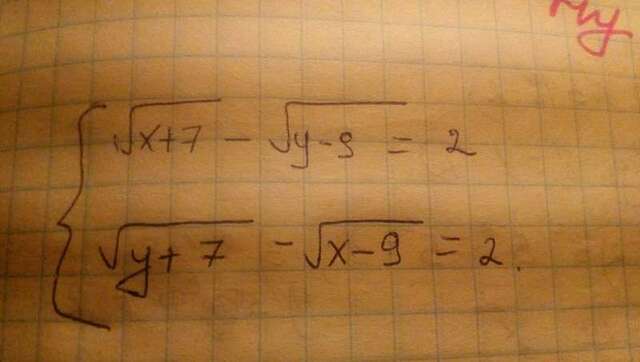 му
√x+7 − √y−9 = 2
√y+7 − √x−9 = 2.